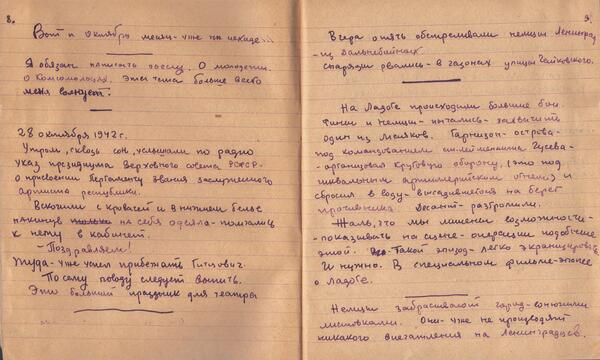 8.
Вот и октябрь месяц - уже на исходе...
Я обязан написать поэму. О молодежи.
О Комсомольцах. Эта тема больше всего
меня волнует.
28 октября 1942 г.
Утром, сквозь сон, услышали по радио
указ президиума Верховного совета РСФСР -
о присвоении Пергаменту звания заслуженного
артиста республики.
Вскочили с кроватей и в нижнем белье
накинув на себя одеяла - помчались
к нему в кабинет.
- Поздравляем!
Туда - уже успел прибежать
По сему поводу следует выпить.
Это большой праздник для театра
9.
Вчера опять обстреливали немцы Ленинград
- из дальнобойных
снаряды рвались - в газонах улицы Чайковского.
На Ладоге происходили большие бои.
Финны и Немцы - пытались - захватить
один из маяков. Гарнизон - острова -
под командованием ст. лейтенанта Гусева -
- организовал круговую оборону, (это под
шквальным артиллерийским огнем) и
сбросил в воду - высадившегося на берег
противника. Десант - разгромили.
Жаль, что мы лишены возможности -
- показывать на сцене - операции подобные
этой. Такой эпизод - легко экранизировать
И нужно. В специальном фильме - эпопее
о Ладоге.
Немцы забрасывают город - вонючими
листовками. Они - уже не производят
никакого впечатления на Ленинградцев.